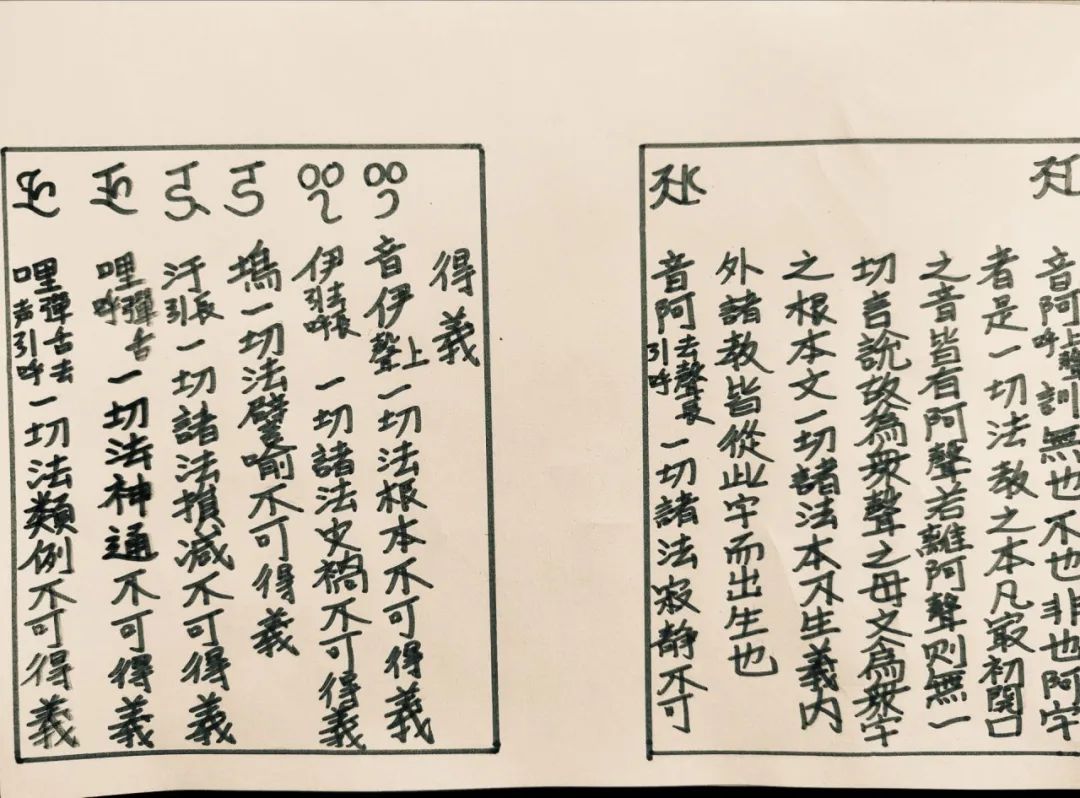 音阿上聲呼訓無也不也非也阿字
者是一切法教之本凡冣初開口
之音皆有阿聲若離阿聲則無一
切言說故為衆聲之母又為衆字
之根本文一切諸法本不生義内
外諸教皆從此字而出生也
音阿去聲長引呼一切諸法寂静不可
得義
音伊上聲一切法根本不可得義
伊去長引呼一切諸法灾禍不可得義
塢一切法譬喻不可得義
汙長引一切諸法損减不可得義
哩彈舌呼一切法神通不可得義
哩彈舌去声引呼一切法類例不可得義